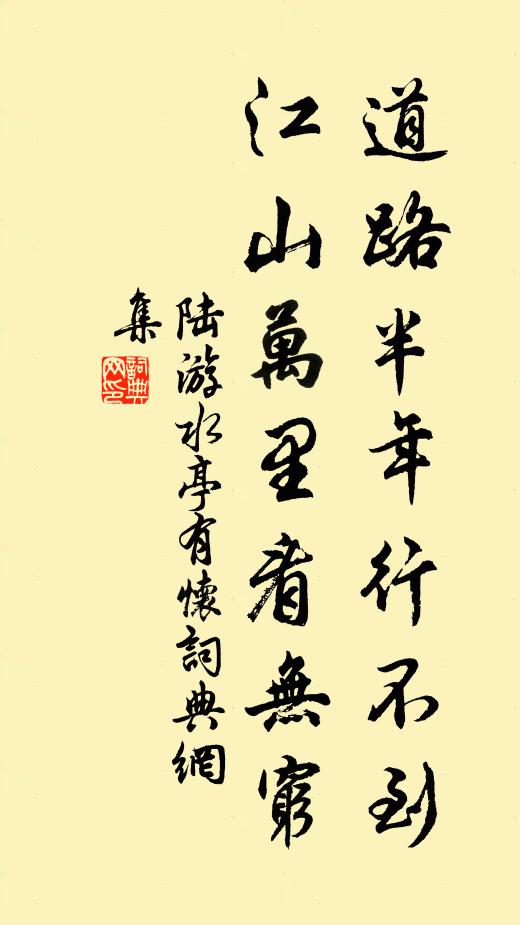 道路半年行不到
江山萬里看無窮
陸游水亭有懷詞典網
集
詞典网印